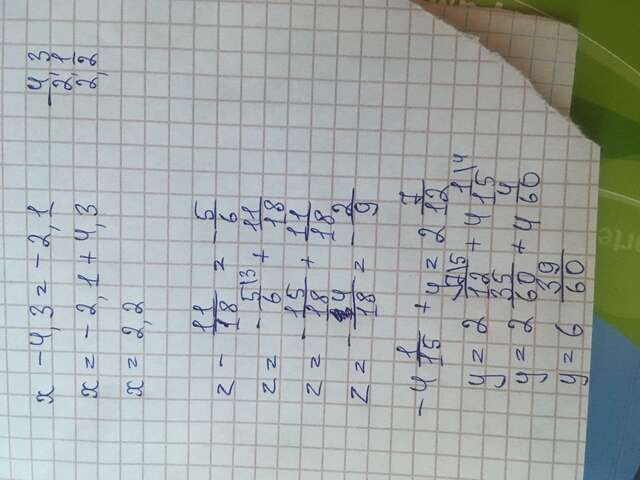 x - 4,3 = - 2,1
x = - 2,1 + 4,3
x = 2,2
- 4,3
2,1
2,2
z - 11/18 = - 5/6
z = - 5\3/6 + 11/18
z = - 15/18 + 11/18
z = - 4/18 = - 2/9
- 4 1/15 + y = 2 7/12
y = 2 7\5/12 + 4 1\4/15
y = 2 35/60 + 4 4/60
y = 6 39/60
rte